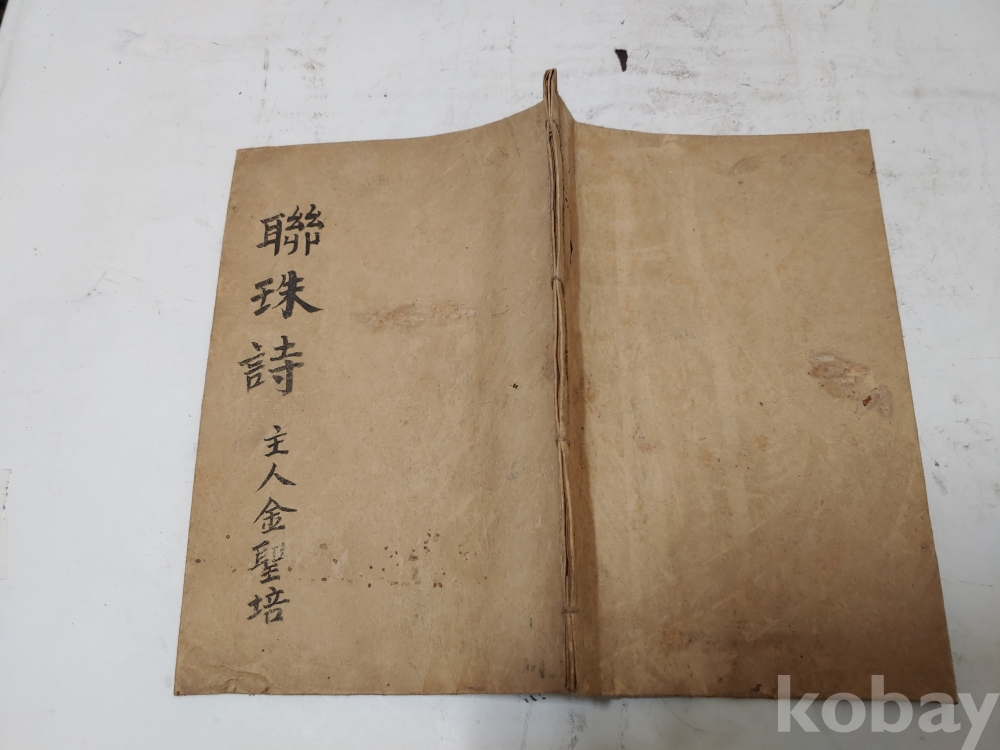 聯珠詩
主人金聖培
kobay